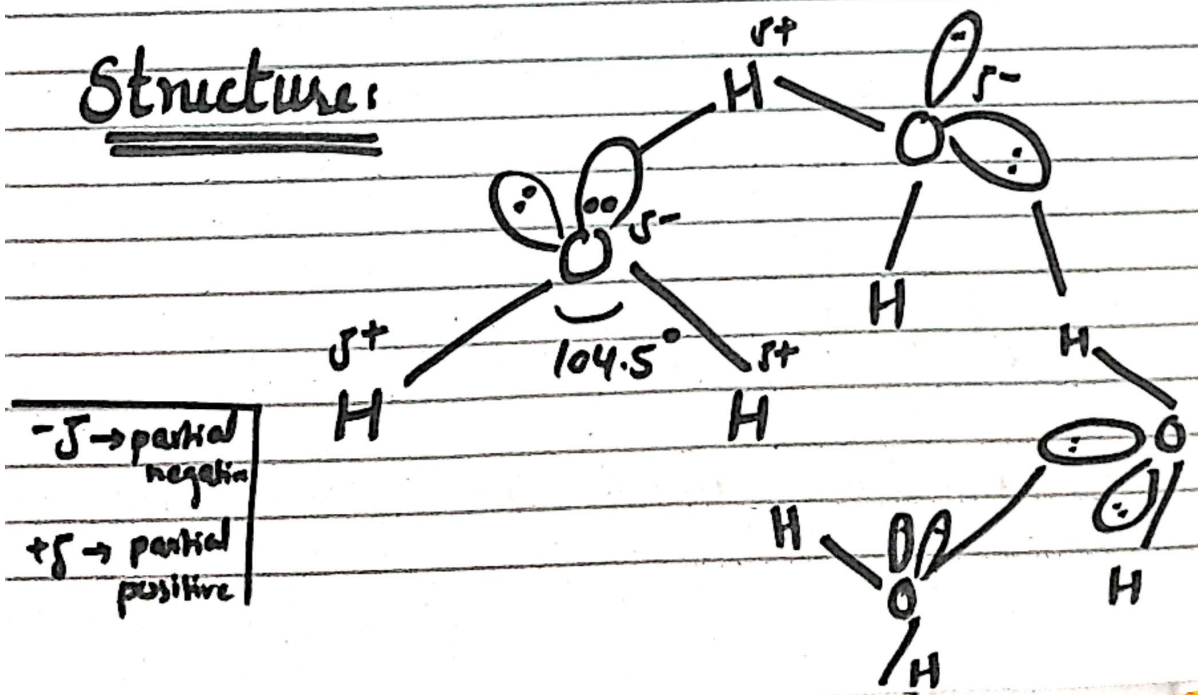 Structure:
δ+
H
O
δ-
H
O
δ-
H
104.5°
δ+
H
δ+
H
H
O
H
H
O
H
-δ → partial
negative
+δ → partial
positive